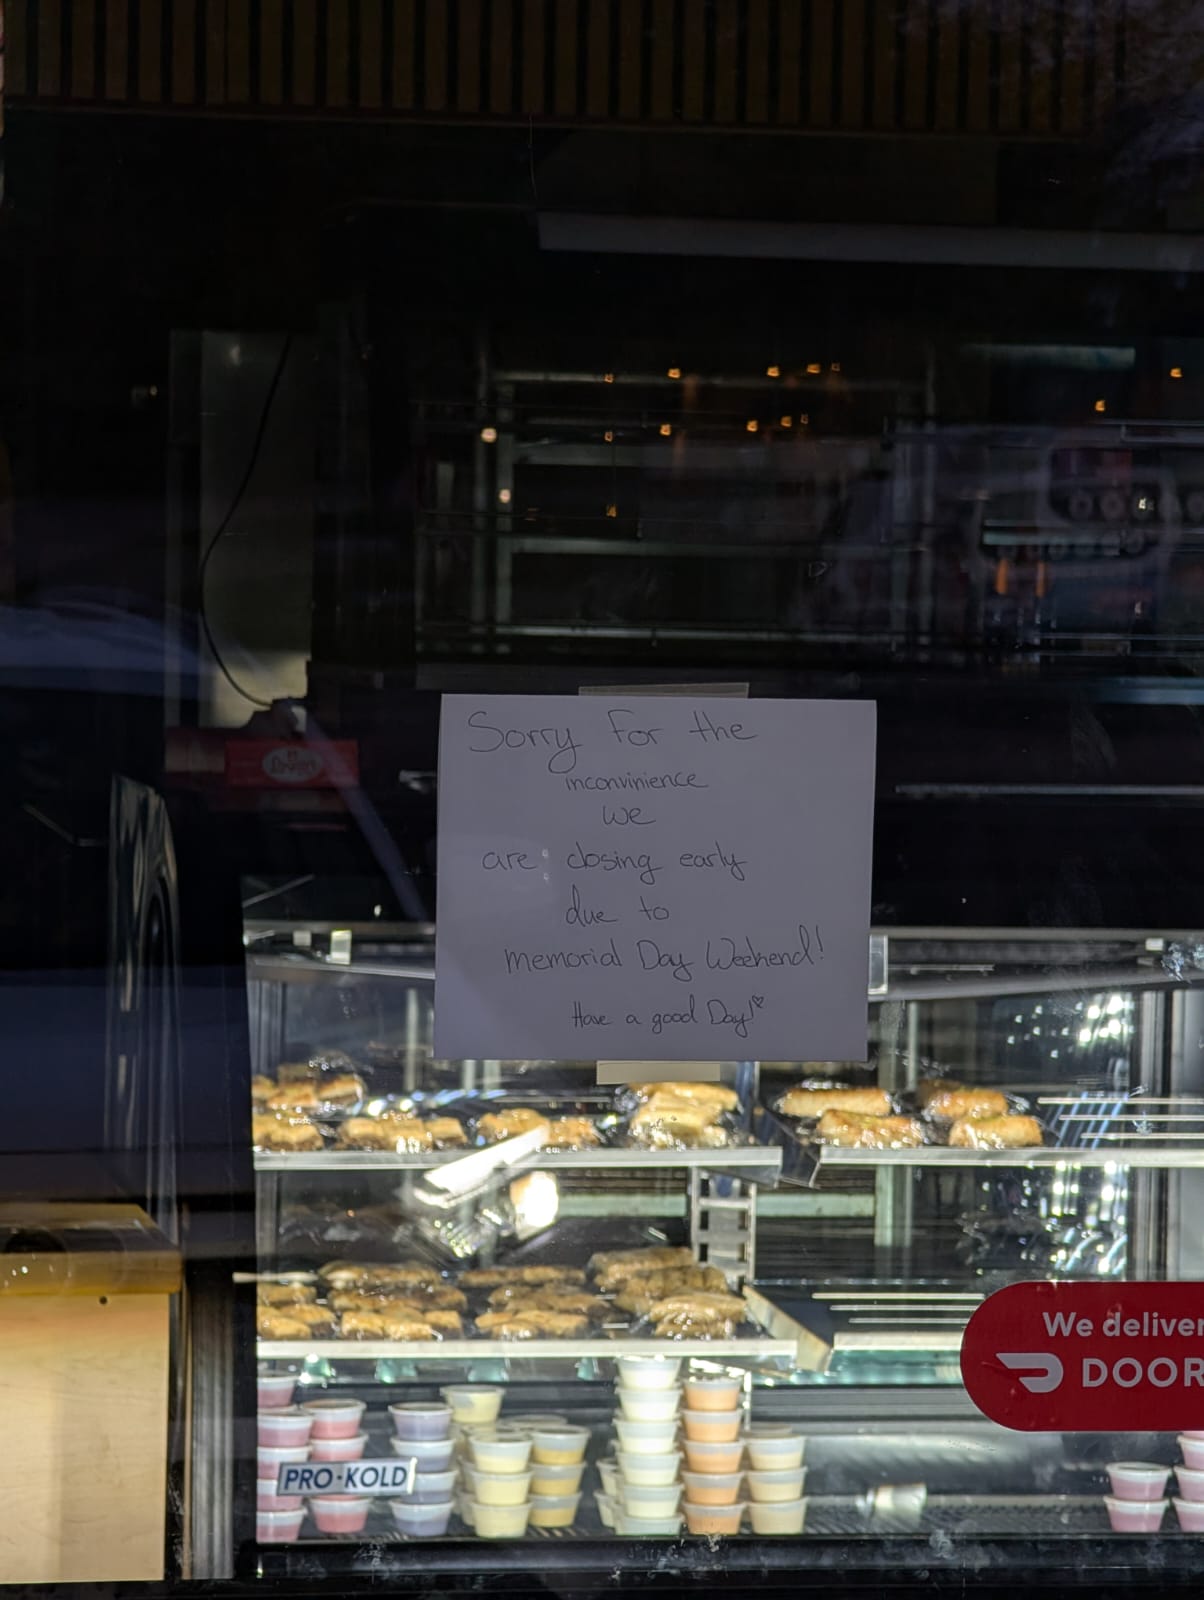 Sorry For the
inconvinience
we
are closing early
due to
memorial Day Weekend!
Have a good Day!
PRO-KOLD
We deliver
DOOR